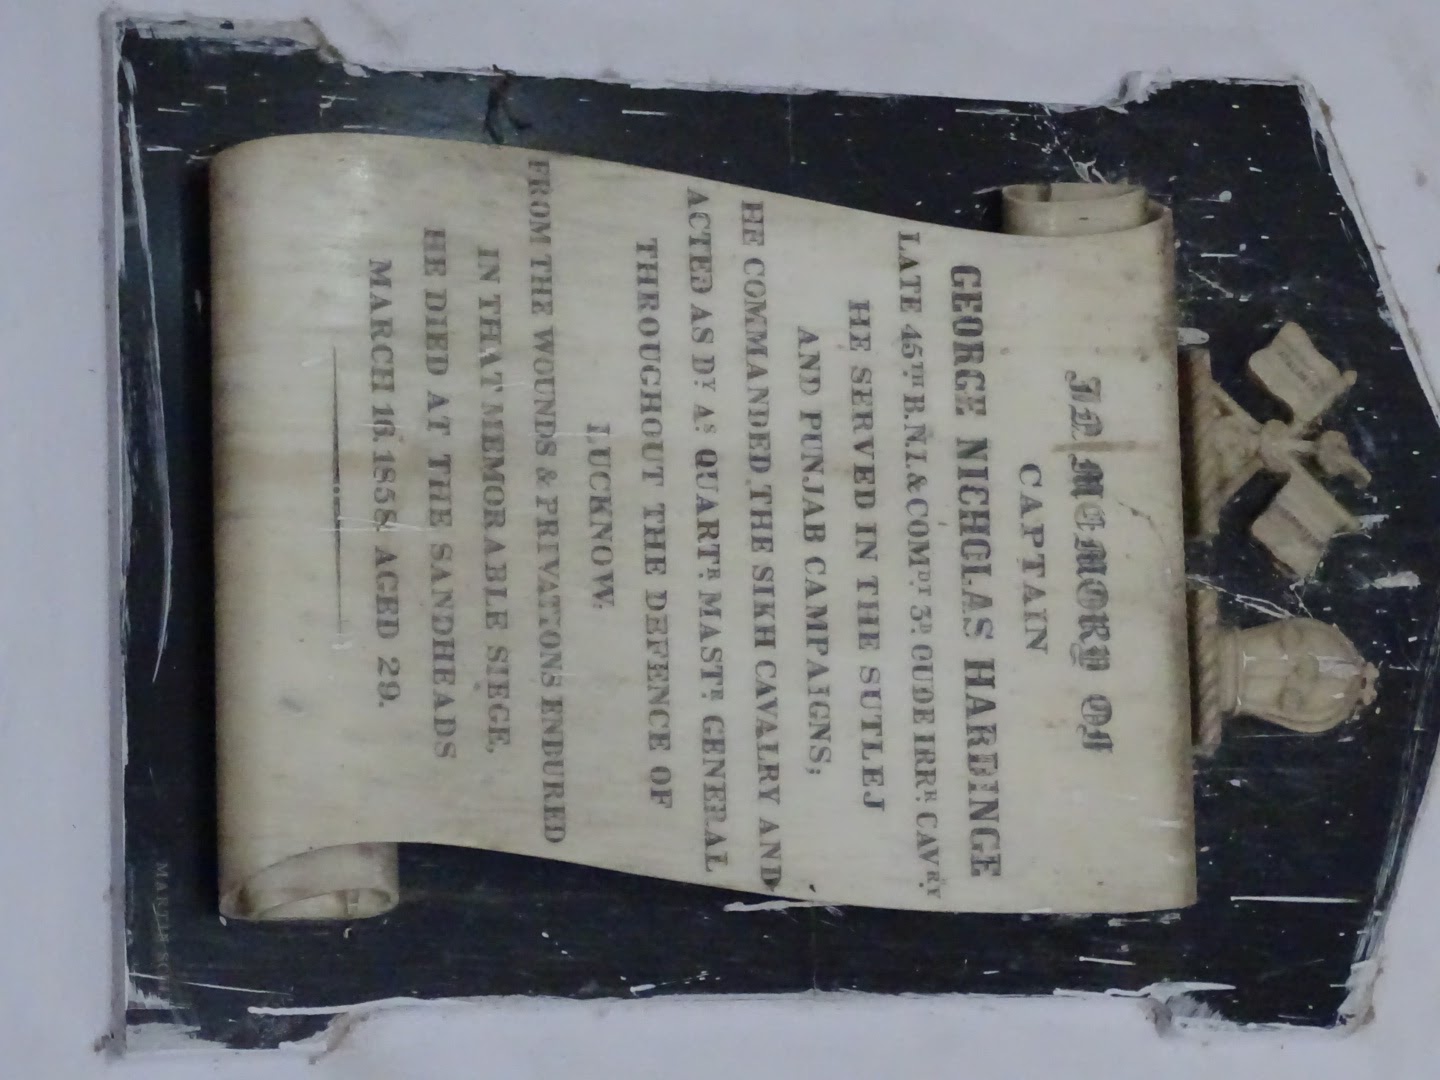 IN MEMORY OF
CAPTAIN
GEORGE NICHOLAS HARDINGE
LATE 45TH B.N.I. & COMDT 3D OUDE IRRR CAVRY
HE SERVED IN THE SUTLEJ
AND PUNJAB CAMPAIGNS;
HE COMMANDED THE SIKH CAVALRY AND
ACTED AS DY AS QUARTR MASTR GENERAL
THROUGHOUT THE DEFENCE OF
LUCKNOW.
FROM THE WOUNDS & PRIVATIONS ENDURED
IN THAT MEMORABLE SIEGE,
HE DIED AT THE SANDHEADS
MARCH 16. 1858 AGED 29.